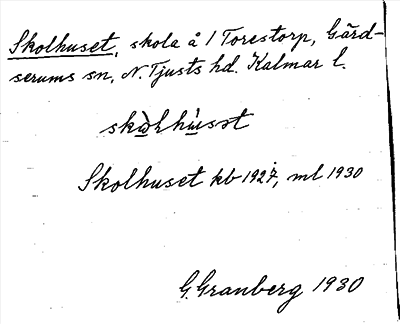 Skolhuset, skola å 1 Torestorp, Gärd-
serums sn, N. Tjusts hd. Kalmar l.
Skolhuset kb 1927, ml 1930
G. Granberg 1930